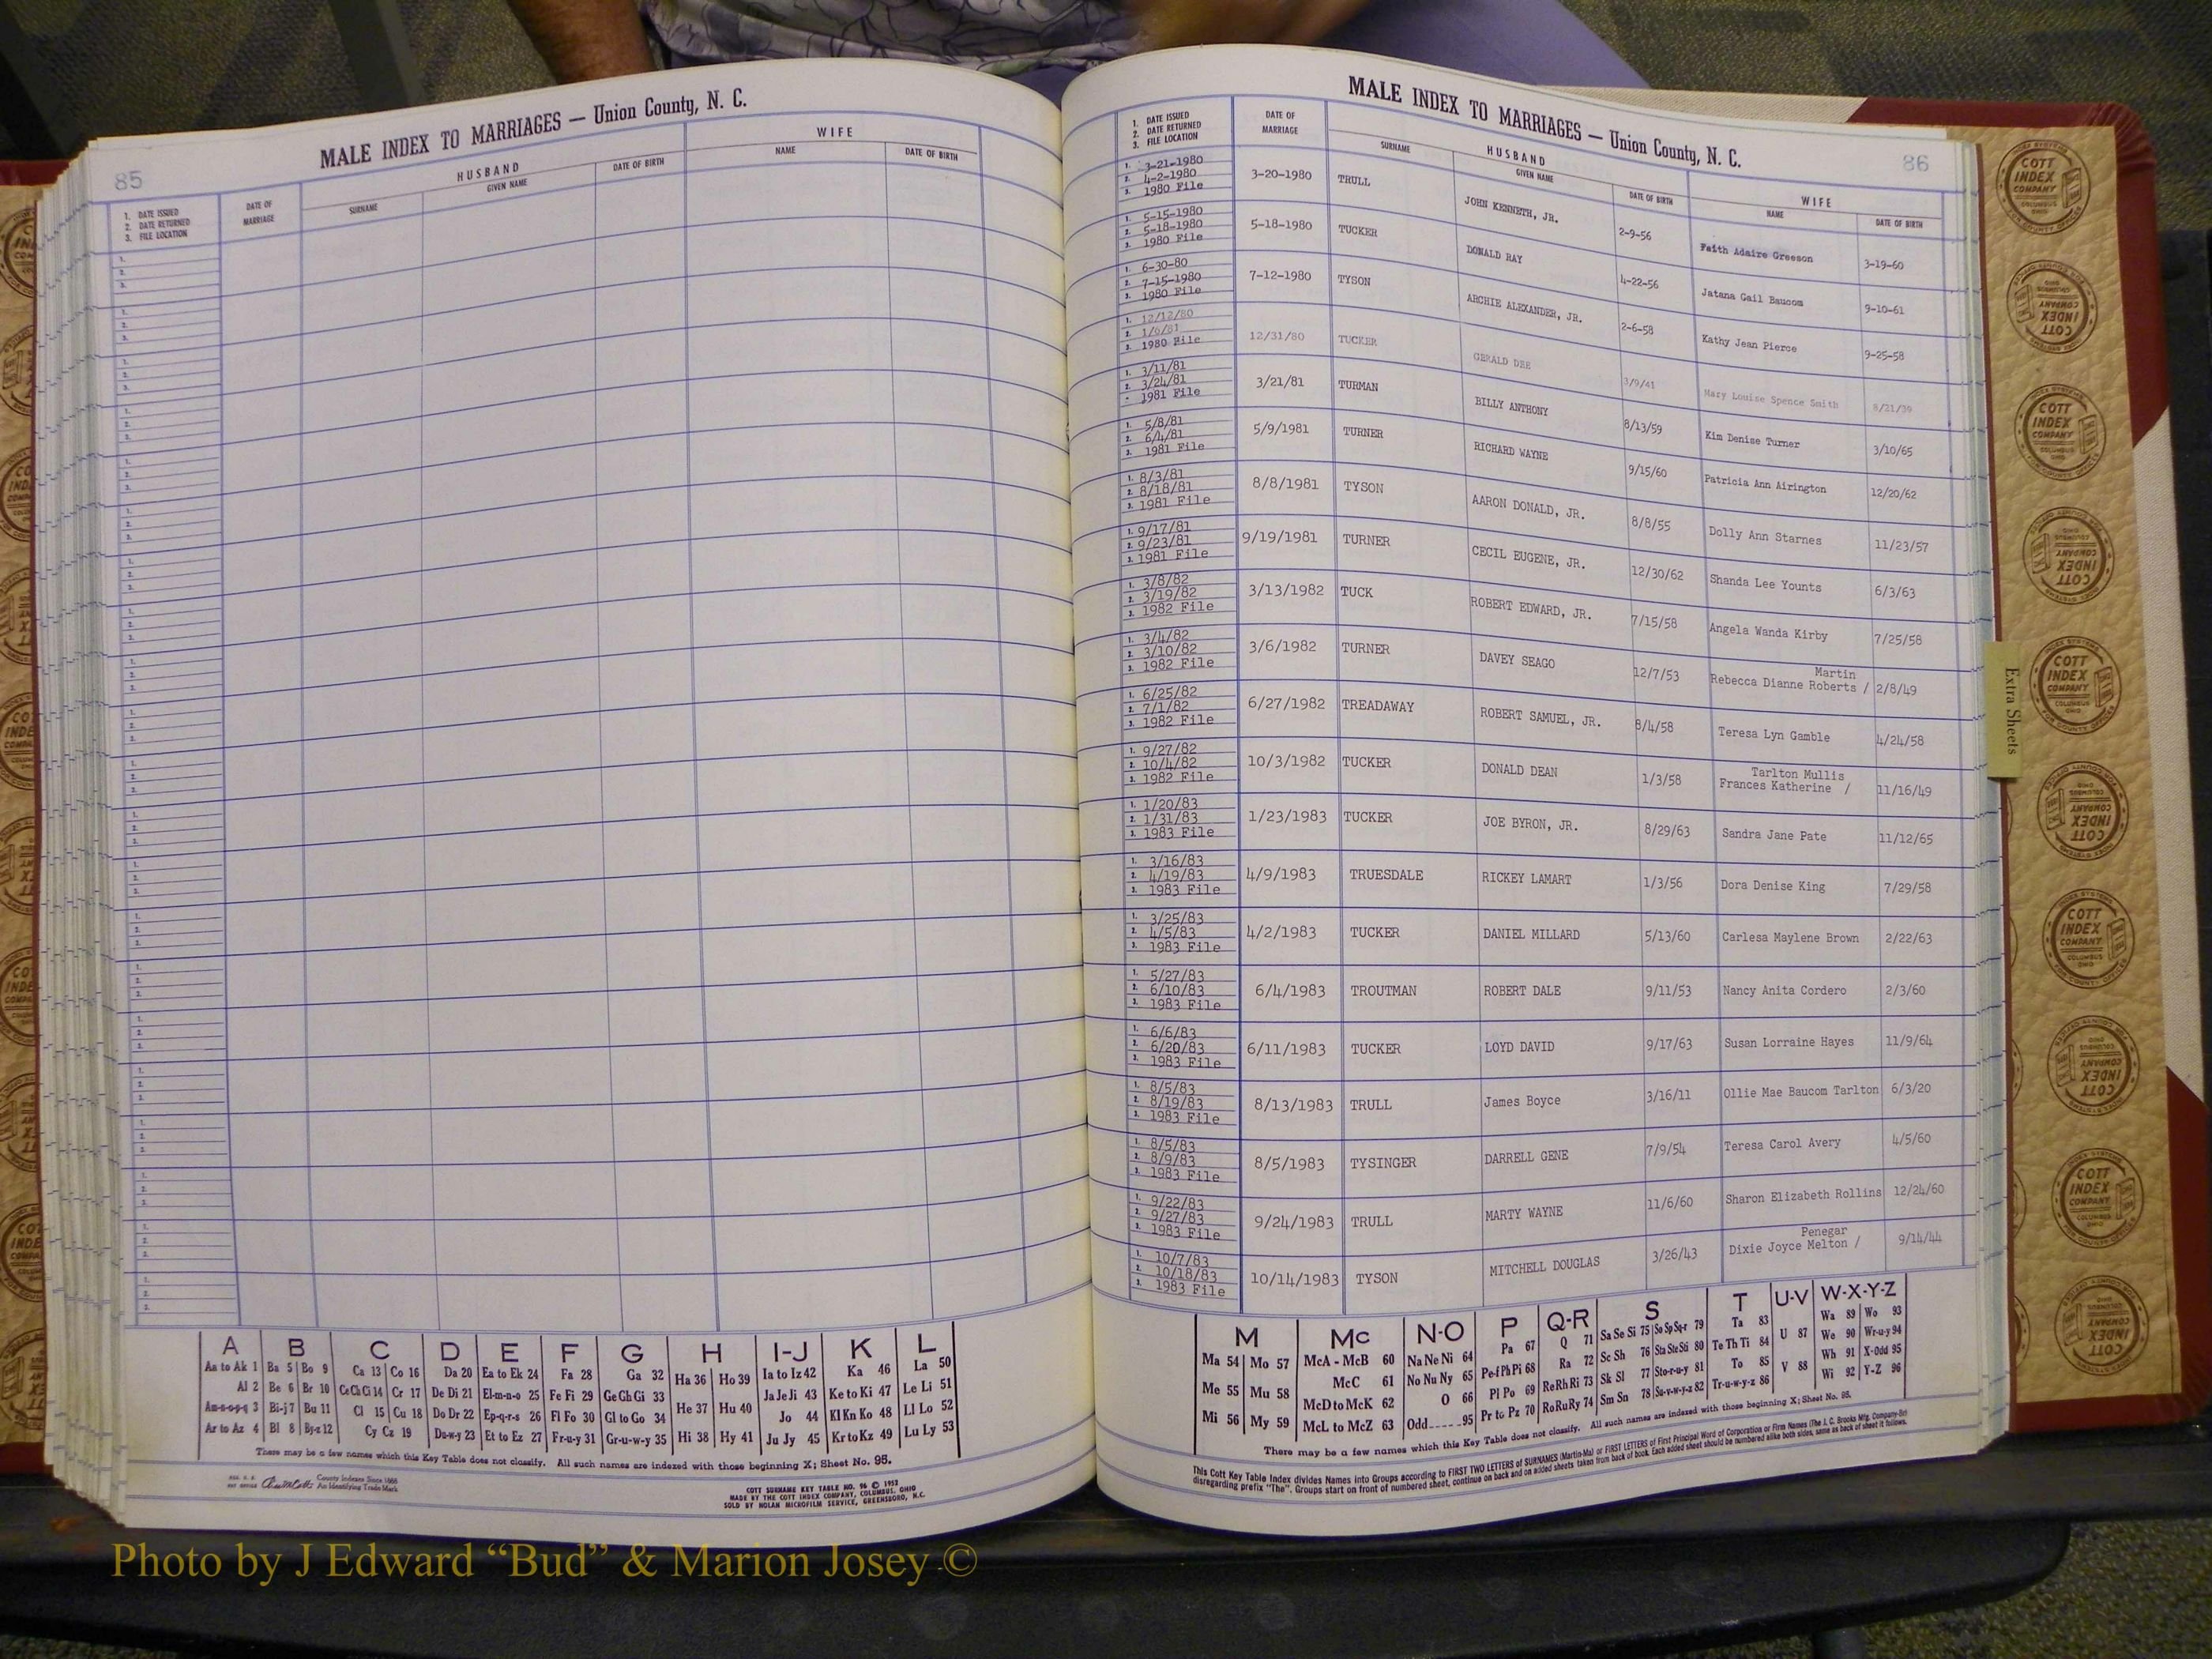 85
MALE INDEX TO MARRIAGES — Union County, N. C.
HUSBAND
WIFE
1. DATE ISSUED
2. DATE RETURNED
3. FILE LOCATION
DATE OF MARRIAGE
SURNAME
GIVEN NAME
DATE OF BIRTH
NAME
DATE OF BIRTH
A B C D E F G H I-J K L
Aa to Ak 1 Ba 5 Bo 9 Ca 13 Co 16 Da 20 Ea to Ek 24 Fa 28 Ga 32 Ha 36 Ho 39 Ia to Iz 42 Ka 46 La 50
Al 2 Be 6 Br 10 Ce Ch Ci 14 Cr 17 De Di 21 El-m-n-o 25 Fe Fi 29 Ge Gh Gi 33 He 37 Hu 40 Ja Je Ji 43 Ke to Ki 47 Le Li 51
Am-n-o-p-q 3 Bi-j 7 Bu 11 Cl 15 Cu 18 Do Dr 22 Ep-q-r-s 26 Fl Fo 30 Gl to Go 34 Hi 38 Hy 41 Jo 44 Kl Kn Ko 48 Ll Lo 52
Ar to Az 4 Bl 8 By-z 12 Cy Cz 19 Du-w-y 23 Et to Ez 27 Fr-u-y 31 Gr-u-w-y 35 Ju Jy 45 Kr to Kz 49 Lu Ly 53
There may be a few names which this Key Table does not classify. All such names are indexed with those beginning X; Sheet No. 95.
County Indexes Since 1888
An Identifying Trade Mark
COTT SURNAME KEY TABLE NO. 96 © 1952
MADE BY THE COTT INDEX COMPANY, COLUMBUS, OHIO
SOLD BY NOLAN MICROFILM SERVICE, GREENSBORO, N.C.
86
MALE INDEX TO MARRIAGES — Union County, N. C.
1. DATE ISSUED
2. DATE RETURNED
3. FILE LOCATION
DATE OF MARRIAGE
HUSBAND
SURNAME
GIVEN NAME
DATE OF BIRTH
WIFE
NAME
DATE OF BIRTH
1. 3-21-1980
2. 4-2-1980
3. 1980 File
3-20-1980 TRULL JOHN KENNETH, JR. 2-9-56 Faith Adaire Greeson 3-19-60
1. 5-15-1980
2. 5-18-1980
3. 1980 File
5-18-1980 TUCKER DONALD RAY 4-22-56 Jatana Gail Baucom 9-10-61
1. 6-30-80
2. 7-15-1980
3. 1980 File
7-12-1980 TYSON ARCHIE ALEXANDER, JR. 2-6-58 Kathy Jean Pierce 9-25-58
1. 12/12/80
2. 1/6/81
3. 1980 File
12/31/80 TUCKER GERALD DEE 3/9/41 Mary Louise Spence Smith 8/21/39
1. 3/11/81
2. 3/24/81
1981 File
3/21/81 TURMAN BILLY ANTHONY 8/13/59 Kim Denise Turner 3/10/65
1. 5/8/81
2. 6/4/81
3. 1981 File
5/9/1981 TURNER RICHARD WAYNE 9/15/60 Patricia Ann Airington 12/20/62
1. 8/3/81
2. 8/18/81
3. 1981 File
8/8/1981 TYSON AARON DONALD, JR. 8/8/55 Dolly Ann Starnes 11/23/57
1. 9/17/81
2. 9/23/81
3. 1981 File
9/19/1981 TURNER CECIL EUGENE, JR. 12/30/62 Shanda Lee Younts 6/3/63
1. 3/8/82
2. 3/19/82
3. 1982 File
3/13/1982 TUCK ROBERT EDWARD, JR. 7/15/58 Angela Wanda Kirby 7/25/58
1. 3/4/82
2. 3/10/82
3. 1982 File
Martin
3/6/1982 TURNER DAVEY SEAGO 12/7/53 Rebecca Dianne Roberts / 2/8/49
1. 6/25/82
2. 7/1/82
3. 1982 File
6/27/1982 TREADAWAY ROBERT SAMUEL, JR. 8/4/58 Teresa Lyn Gamble 4/24/58
1. 9/27/82
2. 10/4/82
3. 1982 File
Tarlton Mullis
10/3/1982 TUCKER DONALD DEAN 1/3/58 Frances Katherine / 11/16/49
1. 1/20/83
2. 1/31/83
3. 1983 File
1/23/1983 TUCKER JOE BYRON, JR. 8/29/63 Sandra Jane Pate 11/12/65
1. 3/16/83
2. 4/19/83
3. 1983 File
4/9/1983 TRUESDALE RICKEY LAMART 1/3/56 Dora Denise King 7/29/58
1. 3/25/83
2. 4/5/83
3. 1983 File
4/2/1983 TUCKER DANIEL MILLARD 5/13/60 Carlesa Maylene Brown 2/22/63
1. 5/27/83
2. 6/10/83
3. 1983 File
6/4/1983 TROUTMAN ROBERT DALE 9/11/53 Nancy Anita Cordero 2/3/60
1. 6/6/83
2. 6/20/83
3. 1983 File
6/11/1983 TUCKER LOYD DAVID 9/17/63 Susan Lorraine Hayes 11/9/64
1. 8/5/83
2. 8/19/83
3. 1983 File
8/13/1983 TRULL James Boyce 3/16/11 Ollie Mae Baucom Tarlton 6/3/20
1. 8/5/83
2. 8/9/83
3. 1983 File
8/5/1983 TYSINGER DARRELL GENE 7/9/54 Teresa Carol Avery 4/5/60
1. 9/22/83
2. 9/27/83
3. 1983 File
9/24/1983 TRULL MARTY WAYNE 11/6/60 Sharon Elizabeth Rollins 12/24/60
1. 10/7/83
2. 10/18/83
3. 1983 File
Penegar
10/14/1983 TYSON MITCHELL DOUGLAS 3/26/43 Dixie Joyce Melton / 9/14/44
M Mc N-O P Q-R S T U-V W-X-Y-Z
Ma 54 Mo 57 McA - McB 60 Na Ne Ni 64 Pa 67 Q 71 Sa Se Si 75 So Sp Sq-r 79 Ta 83 U 87 Wa 89 Wo 93
Me 55 Mu 58 McC 61 No Nu Ny 65 Pe-f Ph Pi 68 Ra 72 Sc Sh 76 Sta Ste Sti 80 Te Th Ti 84 V 88 We 90 Wr-u-y 94
Mi 56 My 59 McD to McK 62 O 66 Pl Po 69 Re Rh Ri 73 Sk Sl 77 Sto-r-u-y 81 To 85 Wh 91 X-Odd 95
McL to McZ 63 Odd 95 Pr to Pz 70 Ro Ru Ry 74 Sm Sn 78 Su-v-w-y-z 82 Tr-u-w-y-z 86 Wi 92 Y-Z 96
There may be a few names which this Key Table does not classify. All such names are indexed with those beginning X; Sheet No. 95.
This Cott Key Table Index divides Names into Groups according to FIRST TWO LETTERS of SURNAMES (Martin-Ma) or FIRST LETTERS of First Principal Word of Corporation or Firm Names (The J. C. Brooks Mfg. Company-Br)
disregarding prefix "The". Groups start on front of numbered sheet, continue on back and on added sheets taken from back of book. Each added sheet should be numbered alike both sides, same as back of sheet it follows.
Extra Sheets
COTT INDEX COMPANY COLUMBUS OHIO
Photo by J Edward “Bud” & Marion Josey ©